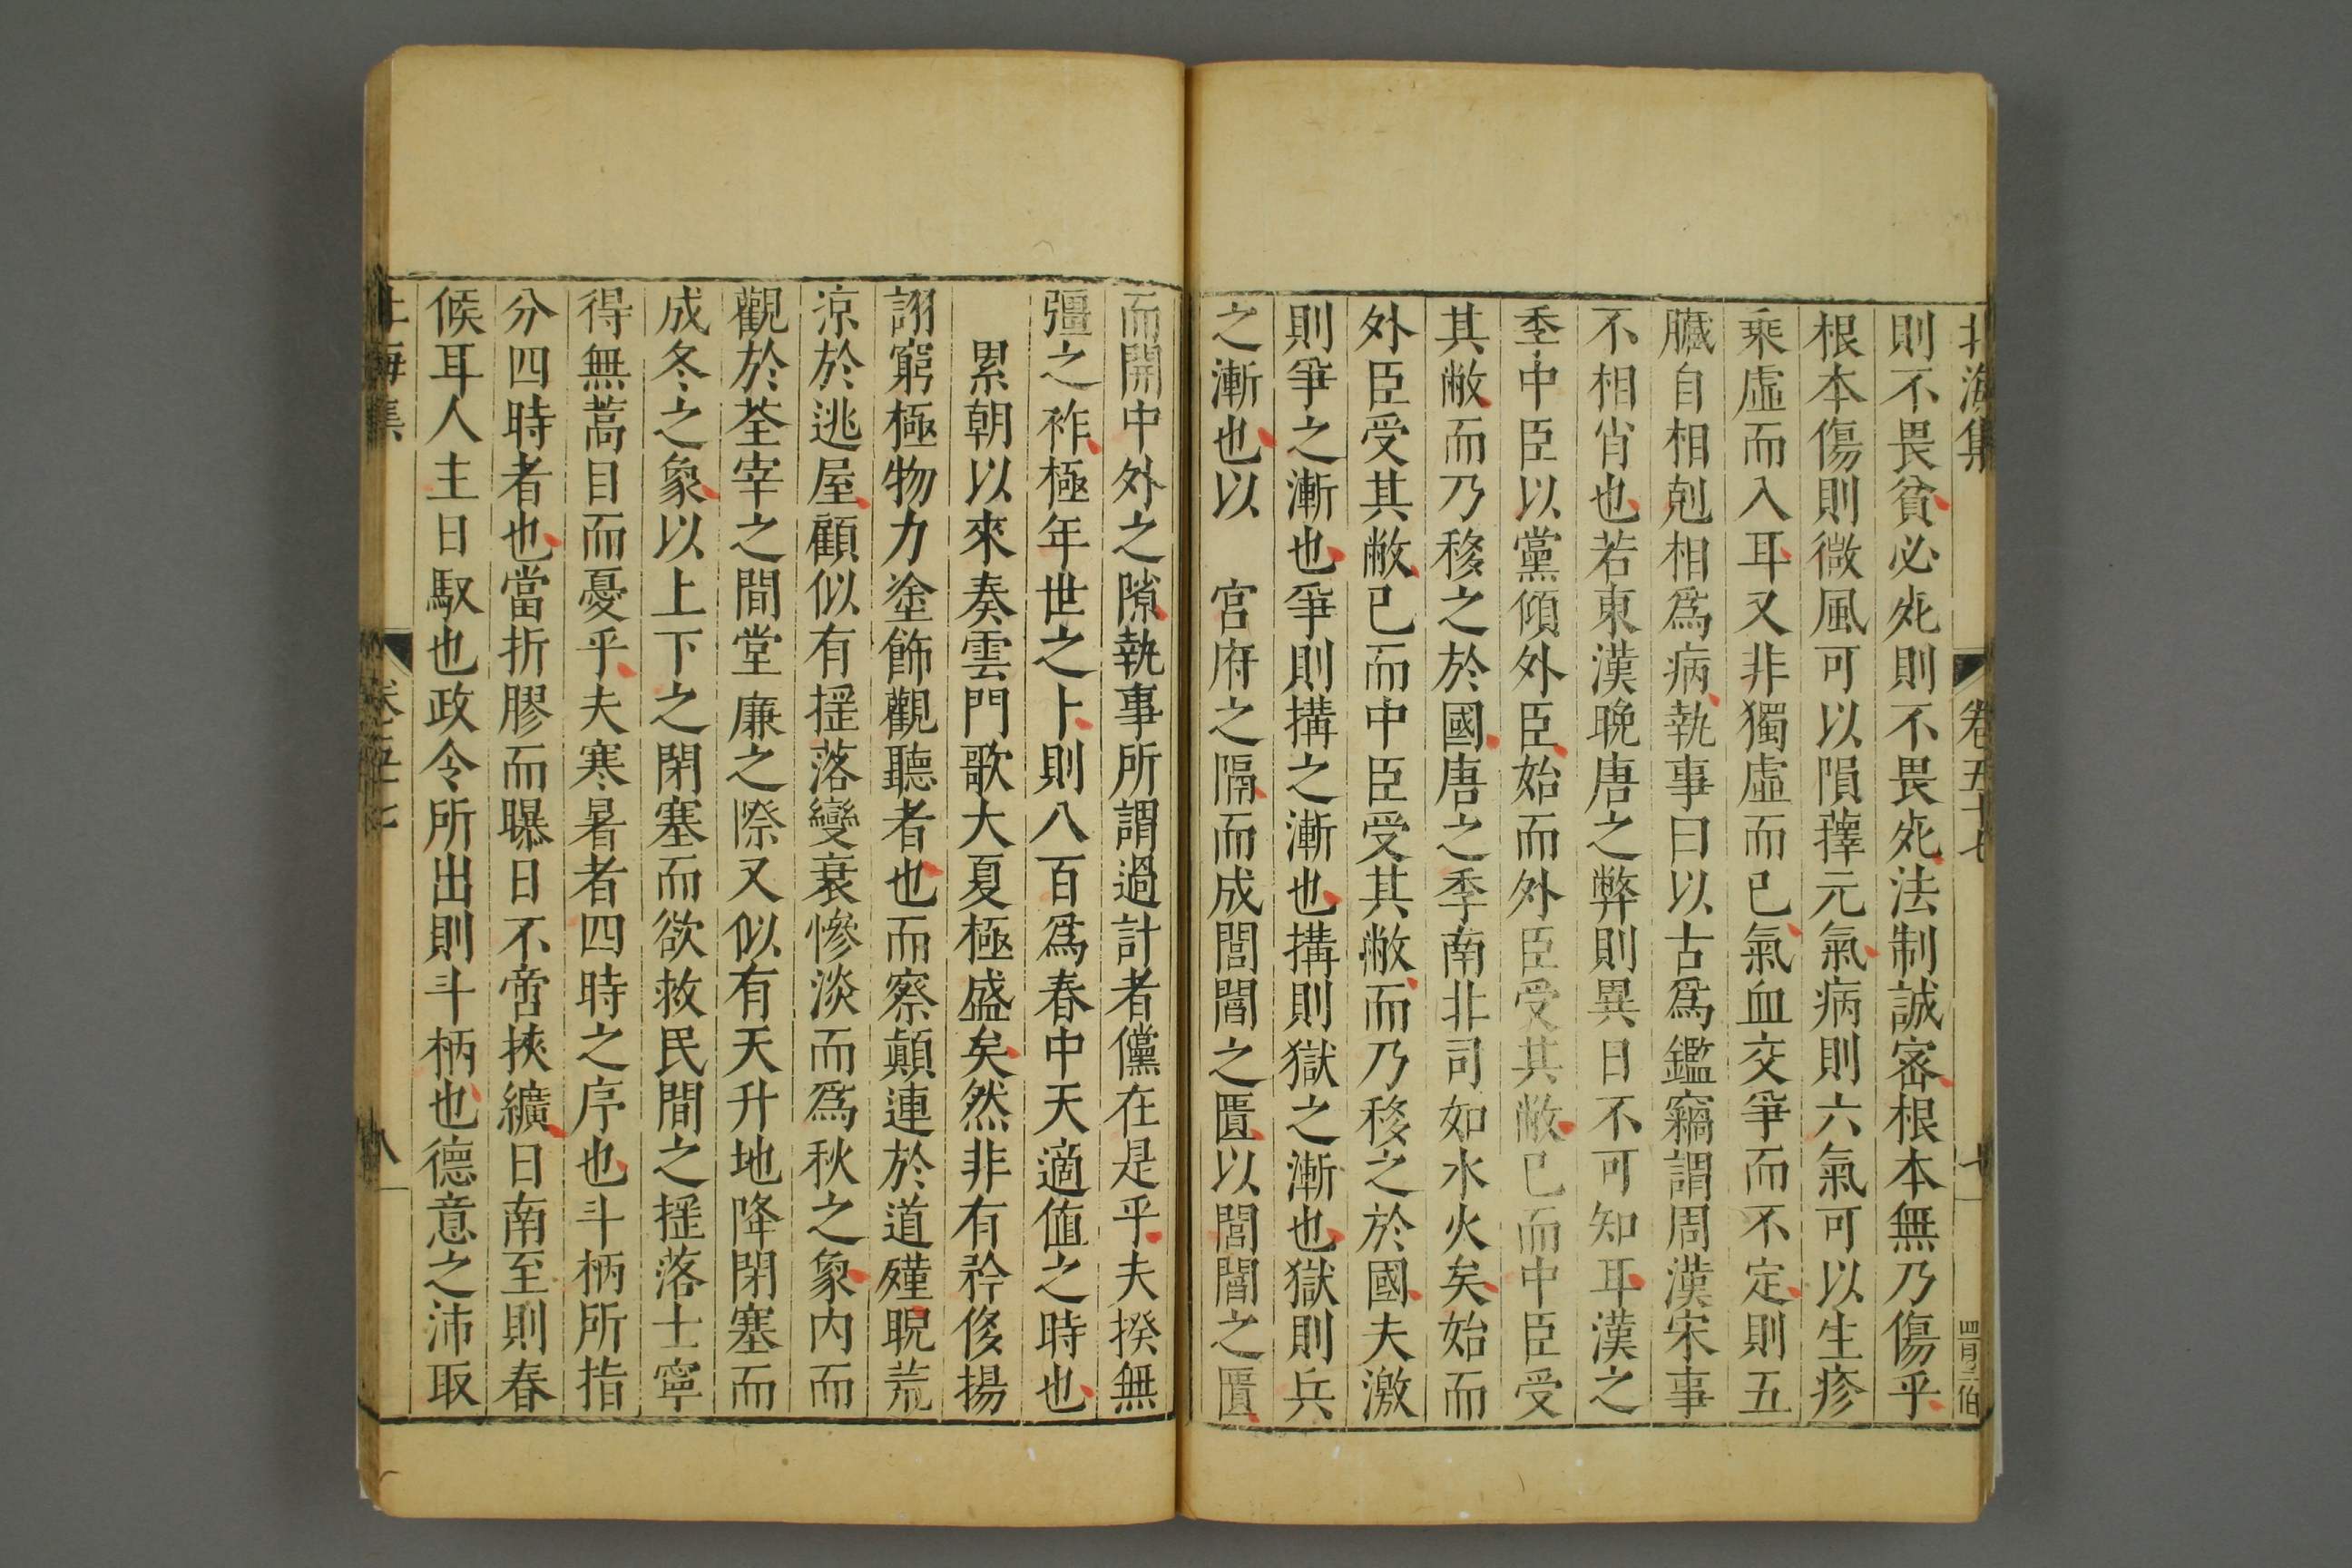 北海集
卷五十七
則不畏貧必死則不畏死法制誠密根本無乃傷乎
根本傷則微風可以隕蘀元氣病則六氣可以生疹
乘虛而入耳又非獨虛而已氣血交爭而不定則五
臟自相剋相爲病執事曰以古爲鑑竊謂周漢宋事
不相肖也若東漢晚唐之弊則異日不可知耳漢之
季中臣以黨傾外臣始而外臣受其敝已而中臣受
其敝而乃移之於國唐之季南非司如水火矣始而
外臣受其敝已而中臣受其敝而乃移之於國夫激
則爭之漸也爭則搆之漸也搆則獄之漸也獄則兵
之漸也以 宮府之隔而成閭閻之匱以閭閻之匱
而開中外之隙執事所謂過計者儻在是乎夫揆無
彊之祚極年世之卜則八百爲春中天適値之時也
累朝以來奏雲門歌大夏極盛矣然非有矜侈揚
詡窮極物力塗飾觀聽者也而察顛連於道殣睨荒
涼於逃屋顧似有搖落變衰慘淡而爲秋之象內而
觀於荃宰之間堂廉之際又似有天升地降閉塞而
成冬之象以上下之閉塞而欲救民間之搖落士寧
得無蒿目而憂乎夫寒暑者四時之序也斗柄所指
分四時者也當折膠而曝日不啻挾纊日南至則春
候耳人主日馭也政令所出則斗柄也德意之沛取
海集
卷五十七
八